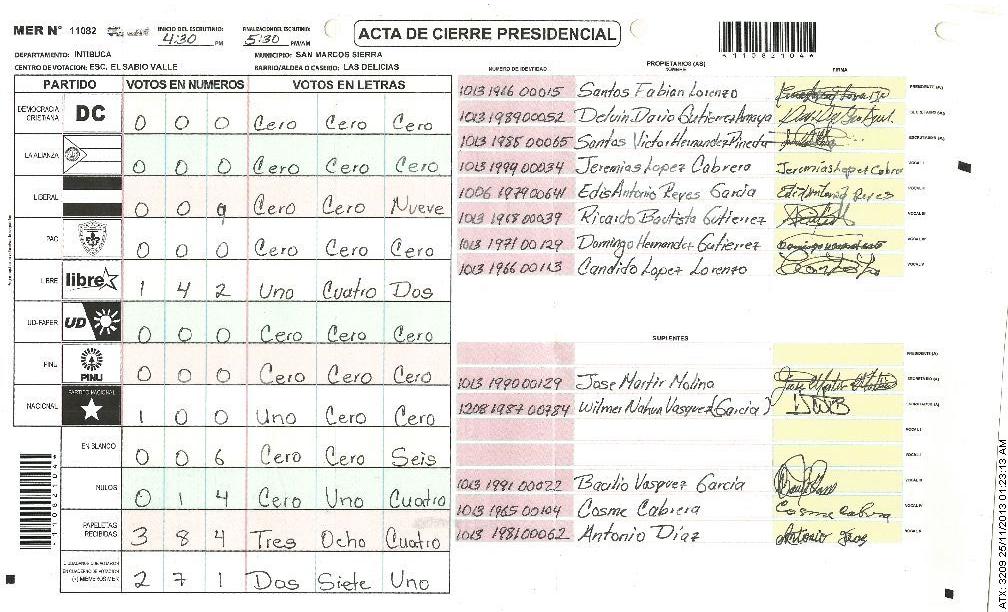 MER Nº 11082 INICIO DEL ESCRUTINIO: 4:30 PM FINALIZACION DEL ESCRUTINIO: 5:30 PM/AM ACTA DE CIERRE PRESIDENCIAL *110821046*
DEPARTAMENTO: INTIBUCA MUNICIPIO: SAN MARCOS SIERRA
CENTRO DE VOTACION: ESC. EL SABIO VALLE BARRIO/ALDEA O CASERIO: LAS DELICIAS
PARTIDO VOTOS EN NUMEROS VOTOS EN LETRAS
DEMOCRACIA CRISTIANA DC 0 0 0 Cero Cero Cero
LA ALIANZA 0 0 0 Cero Cero Cero
LIBERAL 0 0 9 Cero Cero Nueve
PAC 0 0 0 Cero Cero Cero
LIBRE libre 1 4 2 Uno Cuatro Dos
UD-FAPER UD 0 0 0 Cero Cero Cero
PINU PINU 0 0 0 Cero Cero Cero
NACIONAL PARTIDO NACIONAL 1 0 0 Uno Cero Cero
EN BLANCO 0 0 6 Cero Cero Seis
NULOS 0 1 4 Cero Uno Cuatro
PAPELETAS RECIBIDAS 3 8 4 Tres Ocho Cuatro
CIUDADANOS QUE VOTARON EN CUADERNO DE VOTACION (+) MIEMBROS MER 2 7 1 Dos Siete Uno
*110821046*
PROPIETARIOS (AS)
NUMERO DE IDENTIDAD NOMBRE FIRMA
1013 1966 00015 Santos Fabian Lorenzo PRESIDENTE (A)
1013 1989 00052 Delvin Dario Gutierrez Amaya SECRETARIO (A)
1013 1985 00065 Santos Victor Hernandez Pineda ESCRUTADOR (A)
1013 1999 00034 Jeremias Lopez Cabrera Jeremías Lopez Cabrera VOCAL I
1006 1979 00641 Edis Antonio Reyes Garcia Edis Antonio Reyes VOCAL II
1013 1968 00039 Ricardo Bautista Gutierrez VOCAL III
1013 1971 00129 Domingo Hernandez Gutierrez VOCAL IV
1013 1966 00113 Candido Lopez Lorenzo VOCAL V
SUPLENTES
PRESIDENTE (A)
1013 1990 00129 Jose Martir Molina SECRETARIO (A)
1208 1987 00784 Wilmer Nahun Vasquez (Garcia) ESCRUTADOR (A)
VOCAL I
VOCAL II
1013 1991 00022 Bacilio Vasquez Garcia VOCAL III
1013 1965 00104 Cosme Cabrera Cosme Cabrera VOCAL IV
1013 1981 00062 Antonio Díaz Antonio Diaz VOCAL V
ATX: 3209 25/11/2013 01:23:13 AM